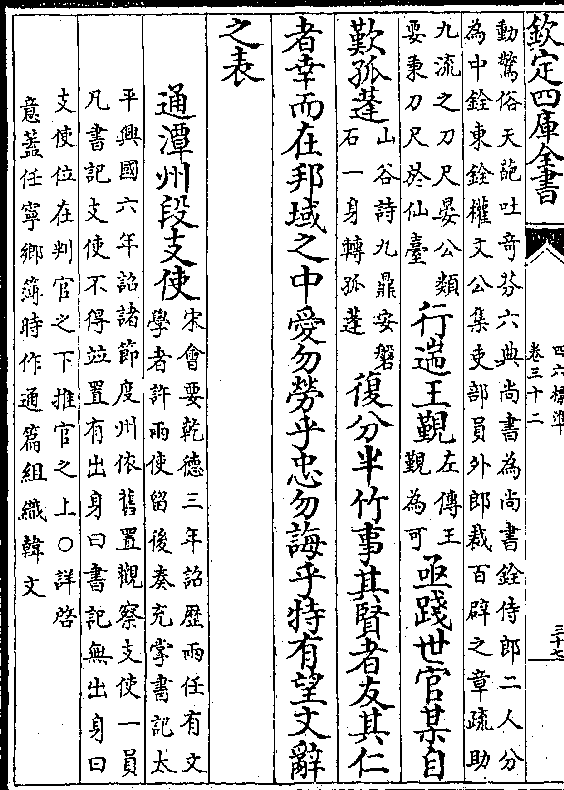 欽定四庫全書
四六標準
卷三十二
三十七
動驚俗天葩吐竒芬六典尚書為尚書銓侍郎二人分
為中銓東銓權文公集吏部員外郎裁百辟之章疏助
九流之刀尺晏公類
要秉刀尺於仙臺
行遄王覲
左傳王
覲為可
亟踐世官某自
歎孤蓬
山谷詩九鼎安磐
石一身轉孤蓬
復分半竹事其賢者友其仁
者幸而在邦域之中愛勿勞乎忠勿誨乎特有望文辭
之表
通潭州段支使
宋會要乾德三年詔歴兩任有文
學者許兩使留後奏充掌書記太
平興國六年詔諸節度州依舊置觀察支使一員
凡書記支使不得竝置有出身曰書記無出身曰
支使位在判官之下推官之上○詳啓
意蓋任寧鄉簿時作通篇組織韓文